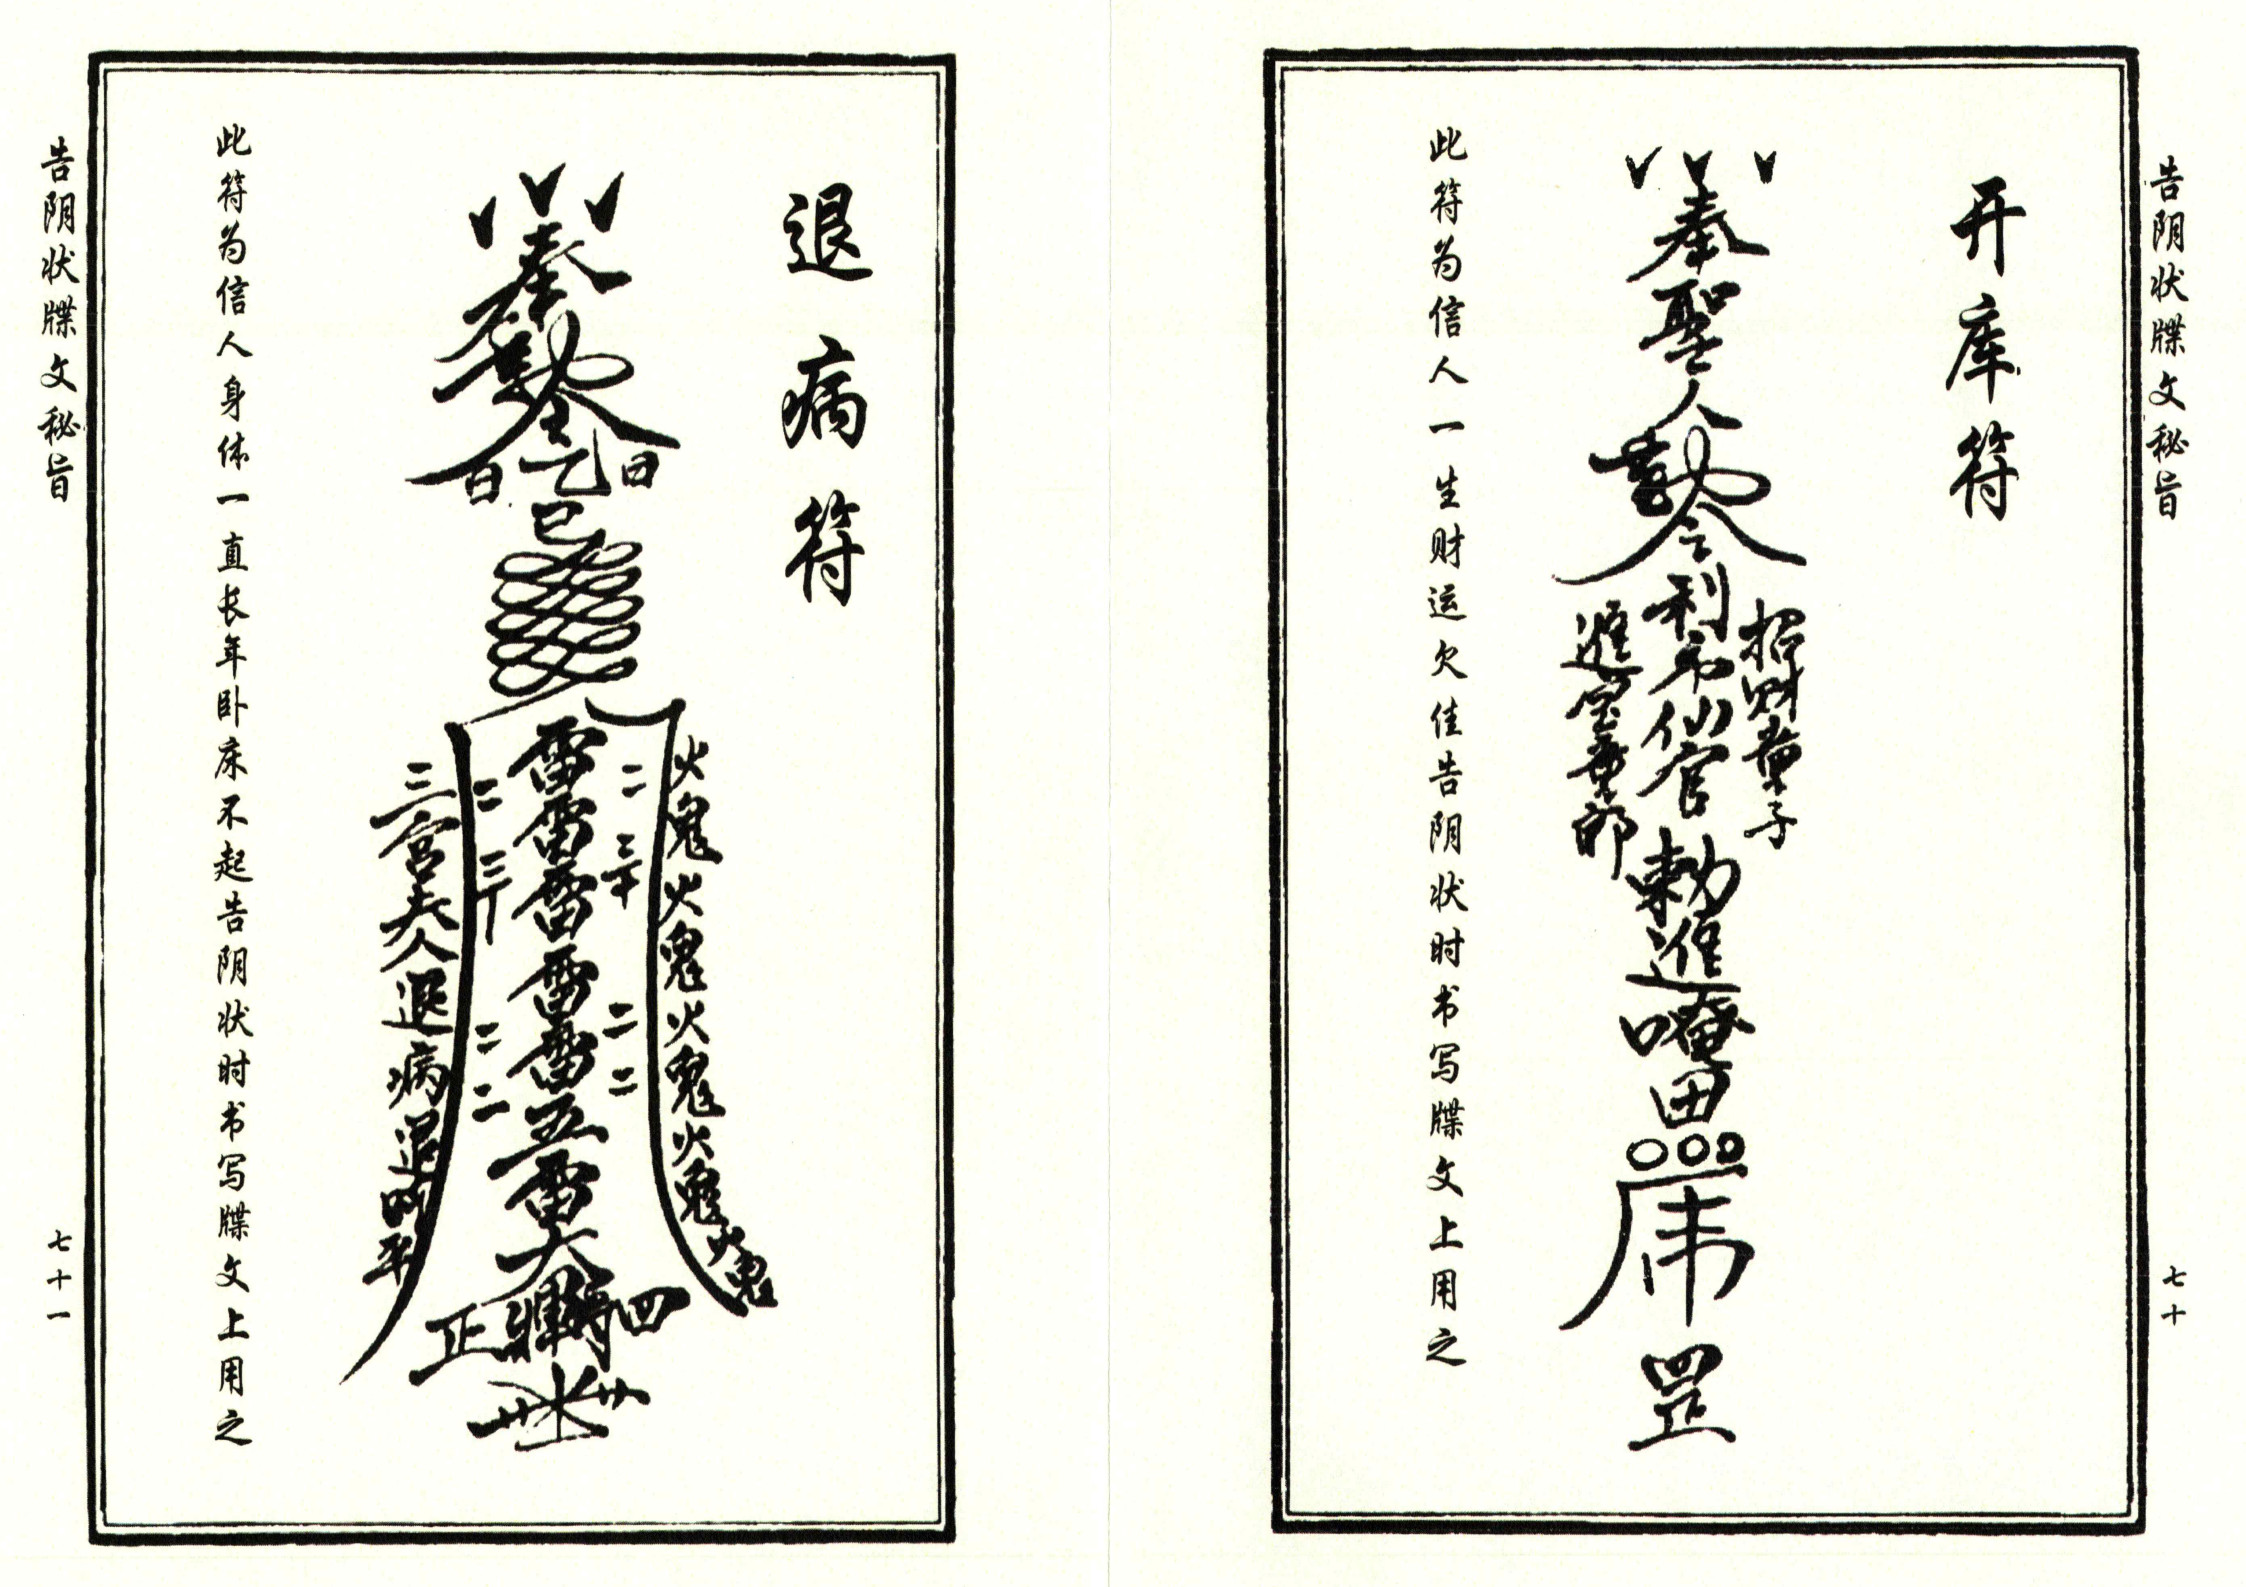 告阴状牒文秘旨
七十
开库符
奉聖人
令
招财童子
利市仙官
進宝童郎
勅進唵田
罡
此符为信人一生财运欠佳告阴状时书写牒文上用之
退病符
奉
令
乙
日
火鬼火鬼火鬼火鬼火鬼
雷雷雷雷雷五雷大將
三宫夫人退病退
四
正
此符为信人身体一直长年卧床不起告阴状时书写牒文上用之
告阴状牒文秘旨
七十一